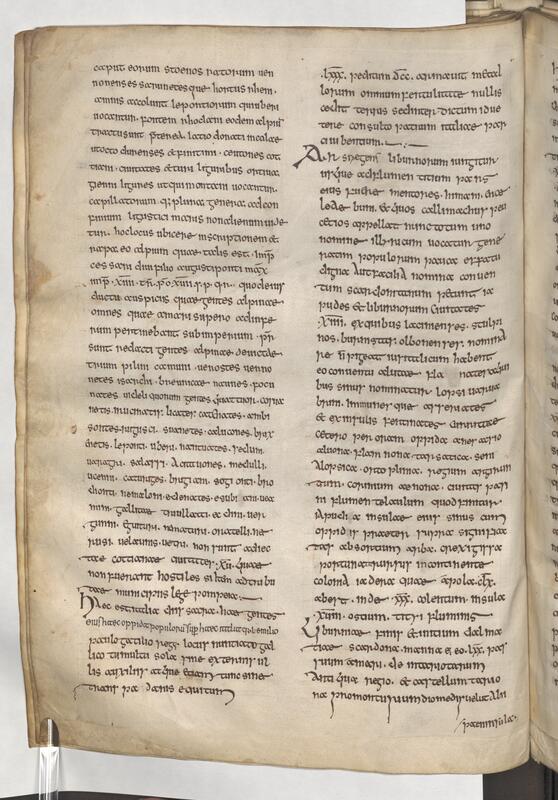 caput eorum stoenos raetorum uen
nonenses sarunetesque hortus rheni
amnis accolunt lepontiorum qui uberi
uocantur. fontem rhodani eodem alpiū
tractu sunt praeterea latio donati incolae
ut octodurenses & finitimi. ceutrones cot
tianae ciuitates & turi liguribus orti uag
gienni ligures ut qui montani uocantur.
capillatorum. que plura genera ad con
finium ligustici maris non alienum uide
tur. hoc locus ubicere inscriptionem &
tropeo alpium quae talis est. imp
cessari diui filio augusti ponti max
imp. xiiii. tr. po xuii. s. p. q. r. quod eius
ductu auspiciis quae gentes alpinae
omnes quae a mari supero ad infe
rum pertinebant sub imperium. p̄r.
sunt redacti gentes alpinae deuictae
trium pilini camuni. uenostes uenno
netes isarchi. breuni cae naunes. focu
nates. uidelicorum gentes quattior. consua
netis. rucinatis. licater catenates. ambi
sontes. rugusci. suanetes. calucones. brix
entis. leponti. uberi. nantuates. sedun.
uaragri. salassi. acitauones. medulli.
uceni. caturiges. brigiani. sogi onti. bro
dionti. nemaloni. edenates. esubi ani. uea
mini. gallitae triullatti. ec dini. uer
gunni. eguituri. nematuri. oratelli. ne
rusi. uelauni. uetri. non sunt adiec
tae cottianae ciuitates. xii. quae
non fuerant hostiles si tam ad tribu
tae municipiis lege pompeia.
Haec est italia diis sacrae. haec gentes
eius haec oppida populorū. sup haec italia qui l. emilio
paulo gatilio regs. locis nuntiato gal
lico tumultu sola sine externis ul
lis auxiliis atque etiam tunc sine
transpadanis equitum
.lxxx. peditum dcc. armauit metal
lorum omnium fertilitate nullis
cedit terris sed inter dictum id ue
tere consulto patrum italiae par
ci iubentium.
Arsiae gens liburnorum iungitur
usque ad flumen titium pars
eius fuere mentores. himani. ence
leae buni. & quos callimachus peu
cetios appellat nunc totum uno
nomine illyricum uocatur gene
ratim populorum pauca effatu
digna aut facilia nomina conuen
tum scardonitanum petunt ia
pudes & liburnorum ciuitates
.xiiii. ex quibus lacinienses. stulpi
nos. burnistas olbonenses. nomina
re n̄ pigeat ius italicum habent
eo conuentu alutae fla nates a qui
bus sinus nominatur lopsi uarua
brini. immunesque asseriates
& ex insulis fertinates curictae
cetero per oram oppida a nesactio
aluona flanona tarsatica. seni
alopsica. ortoplinia. uegium argirun
tum. corinium aenona. ciuitas pasi
ni flumen telauium quo finitur
iapudia insulae eius sinus cum
oppidis praeter supra significa
tas absortium arba. crexi gissa
portunata rursus in continente
colonia iadera quae a pola. clx.
abest. inde. xxx. colentum insula
.xuiii. ostium. titii fluminis
Liburniae finis & initium dalma
tiae scardona. in amne eo. lxx. pas
suum a mari. de in tariotarum
antiqua regio. & castellum tario
na promonturium diomedis uel ut alii
paeninsulae.